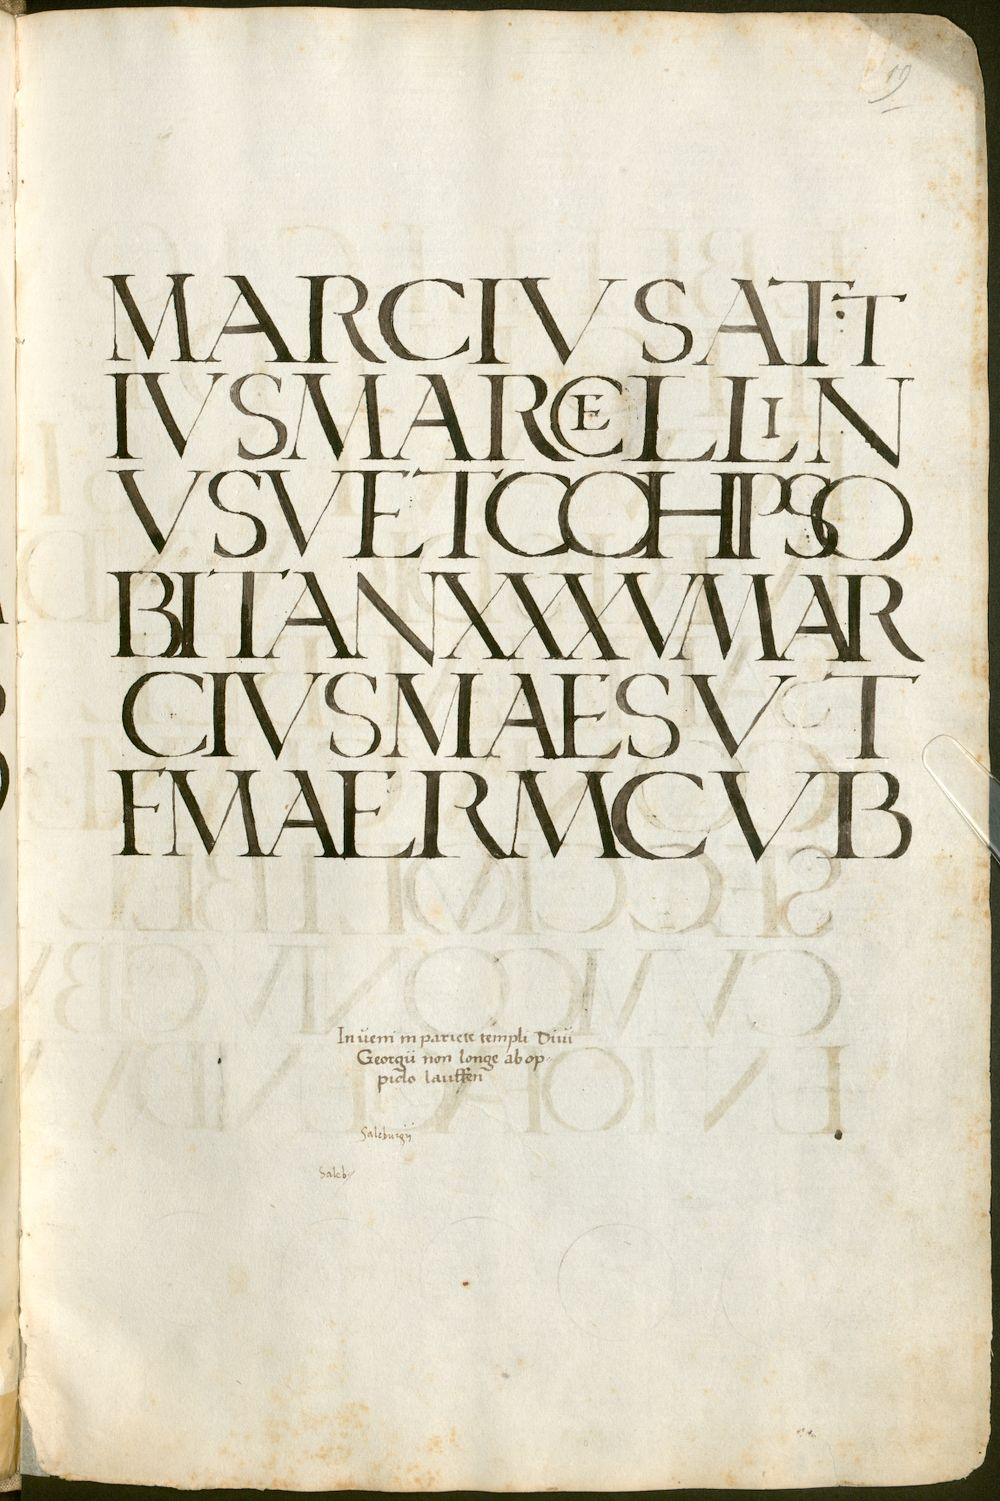 19
MARCIVSATT
IVSMARCELLIN
VSVETCOHIPSO
BITANXXXVMAR
CIVSMAESVT
FMAERMCVB
Inueni in pariete templi Diui
Georgii non longe ab op-
pido lauffen
Saleburgii
Saleb